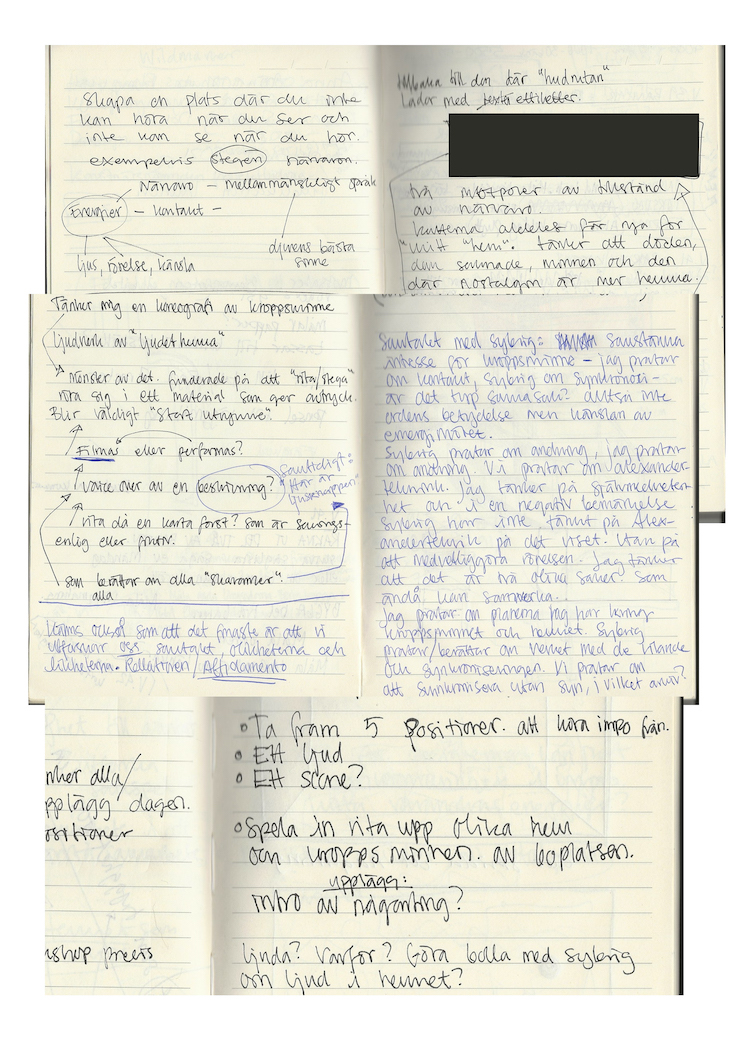 Skapa en plats där du inte
kan höra när du ser och
inte kan se när du hör.
exempelvis stegen närvaron.
Närvaro – mellanmänskligt språk
Energier – kontakt –
ljus, rörelse, känsla
djurens bästa
sinne
tillbaka till den där "hudnutan"
Lådor med texta etiketter.
två motpoler av tillstånd
av närvaro.
alldeles för nya för
"mitt "hem". tänker att döden,
den saknade, minnen och den
där nostalgin är mer hemma.
Tänker mig en koreografi av kroppsminne
Ljudverk av "ljudet hemma"
mönster av det. funderade på att "rita/stega"
röra sig i ett material som ger avtryck.
Blir väldigt "Start utrymme".
"Filmas" eller performas?
vara mer av en beskrivning?
samtidigt:
"Här är
ljusknappen"
rita då en karta först? som är sanings-
enlig eller fiktiv.
som berättar om alla "skavanker".
alla
känns också som att det finaste är att vi
utforskar oss, samtalet, olikheterna och
likheterna. Relationen/Affidamento
Samtalet med Sybrig: samstämma
intresse för kroppsminne – jag pratar
om kontakt, Sybrig om synkronosi–
är det typ samma sak? alltså inte
ordens betydelse men känslan av
energimötet.
Sybrig pratar om andning, jag pratar
om andning. Vi pratar om alexander-
teknik. Jag tänker på självmedveten-
het och i en negativ bemärkelse
Sybrig har inte tänkt på Alex-
anderteknik på det viset. Utan på
att medvetliggöra rörelsen. Jag tänker
att det är två olika saker som
ändå kan samverka.
Jag pratar om planerna jag har kring
kroppsminnet och hemmet. Sybrig
pratar/berättar om verket med de
och synkroniseringen. Vi pratar om
att synkronisera utan syn, i vilket
Ta fram 5 positioner. att köra impo från.
Ett ljud
Ett scane?
nker alla/
pplägg dagen.
ositioner
Spela in rita upp olika hem
och kroppsminnen. av boplatsen.
upplägg:
intro av någonting?
kshop precis
ljuda? Varför? Göra bolla med Sybrig
om ljud i hemmet?